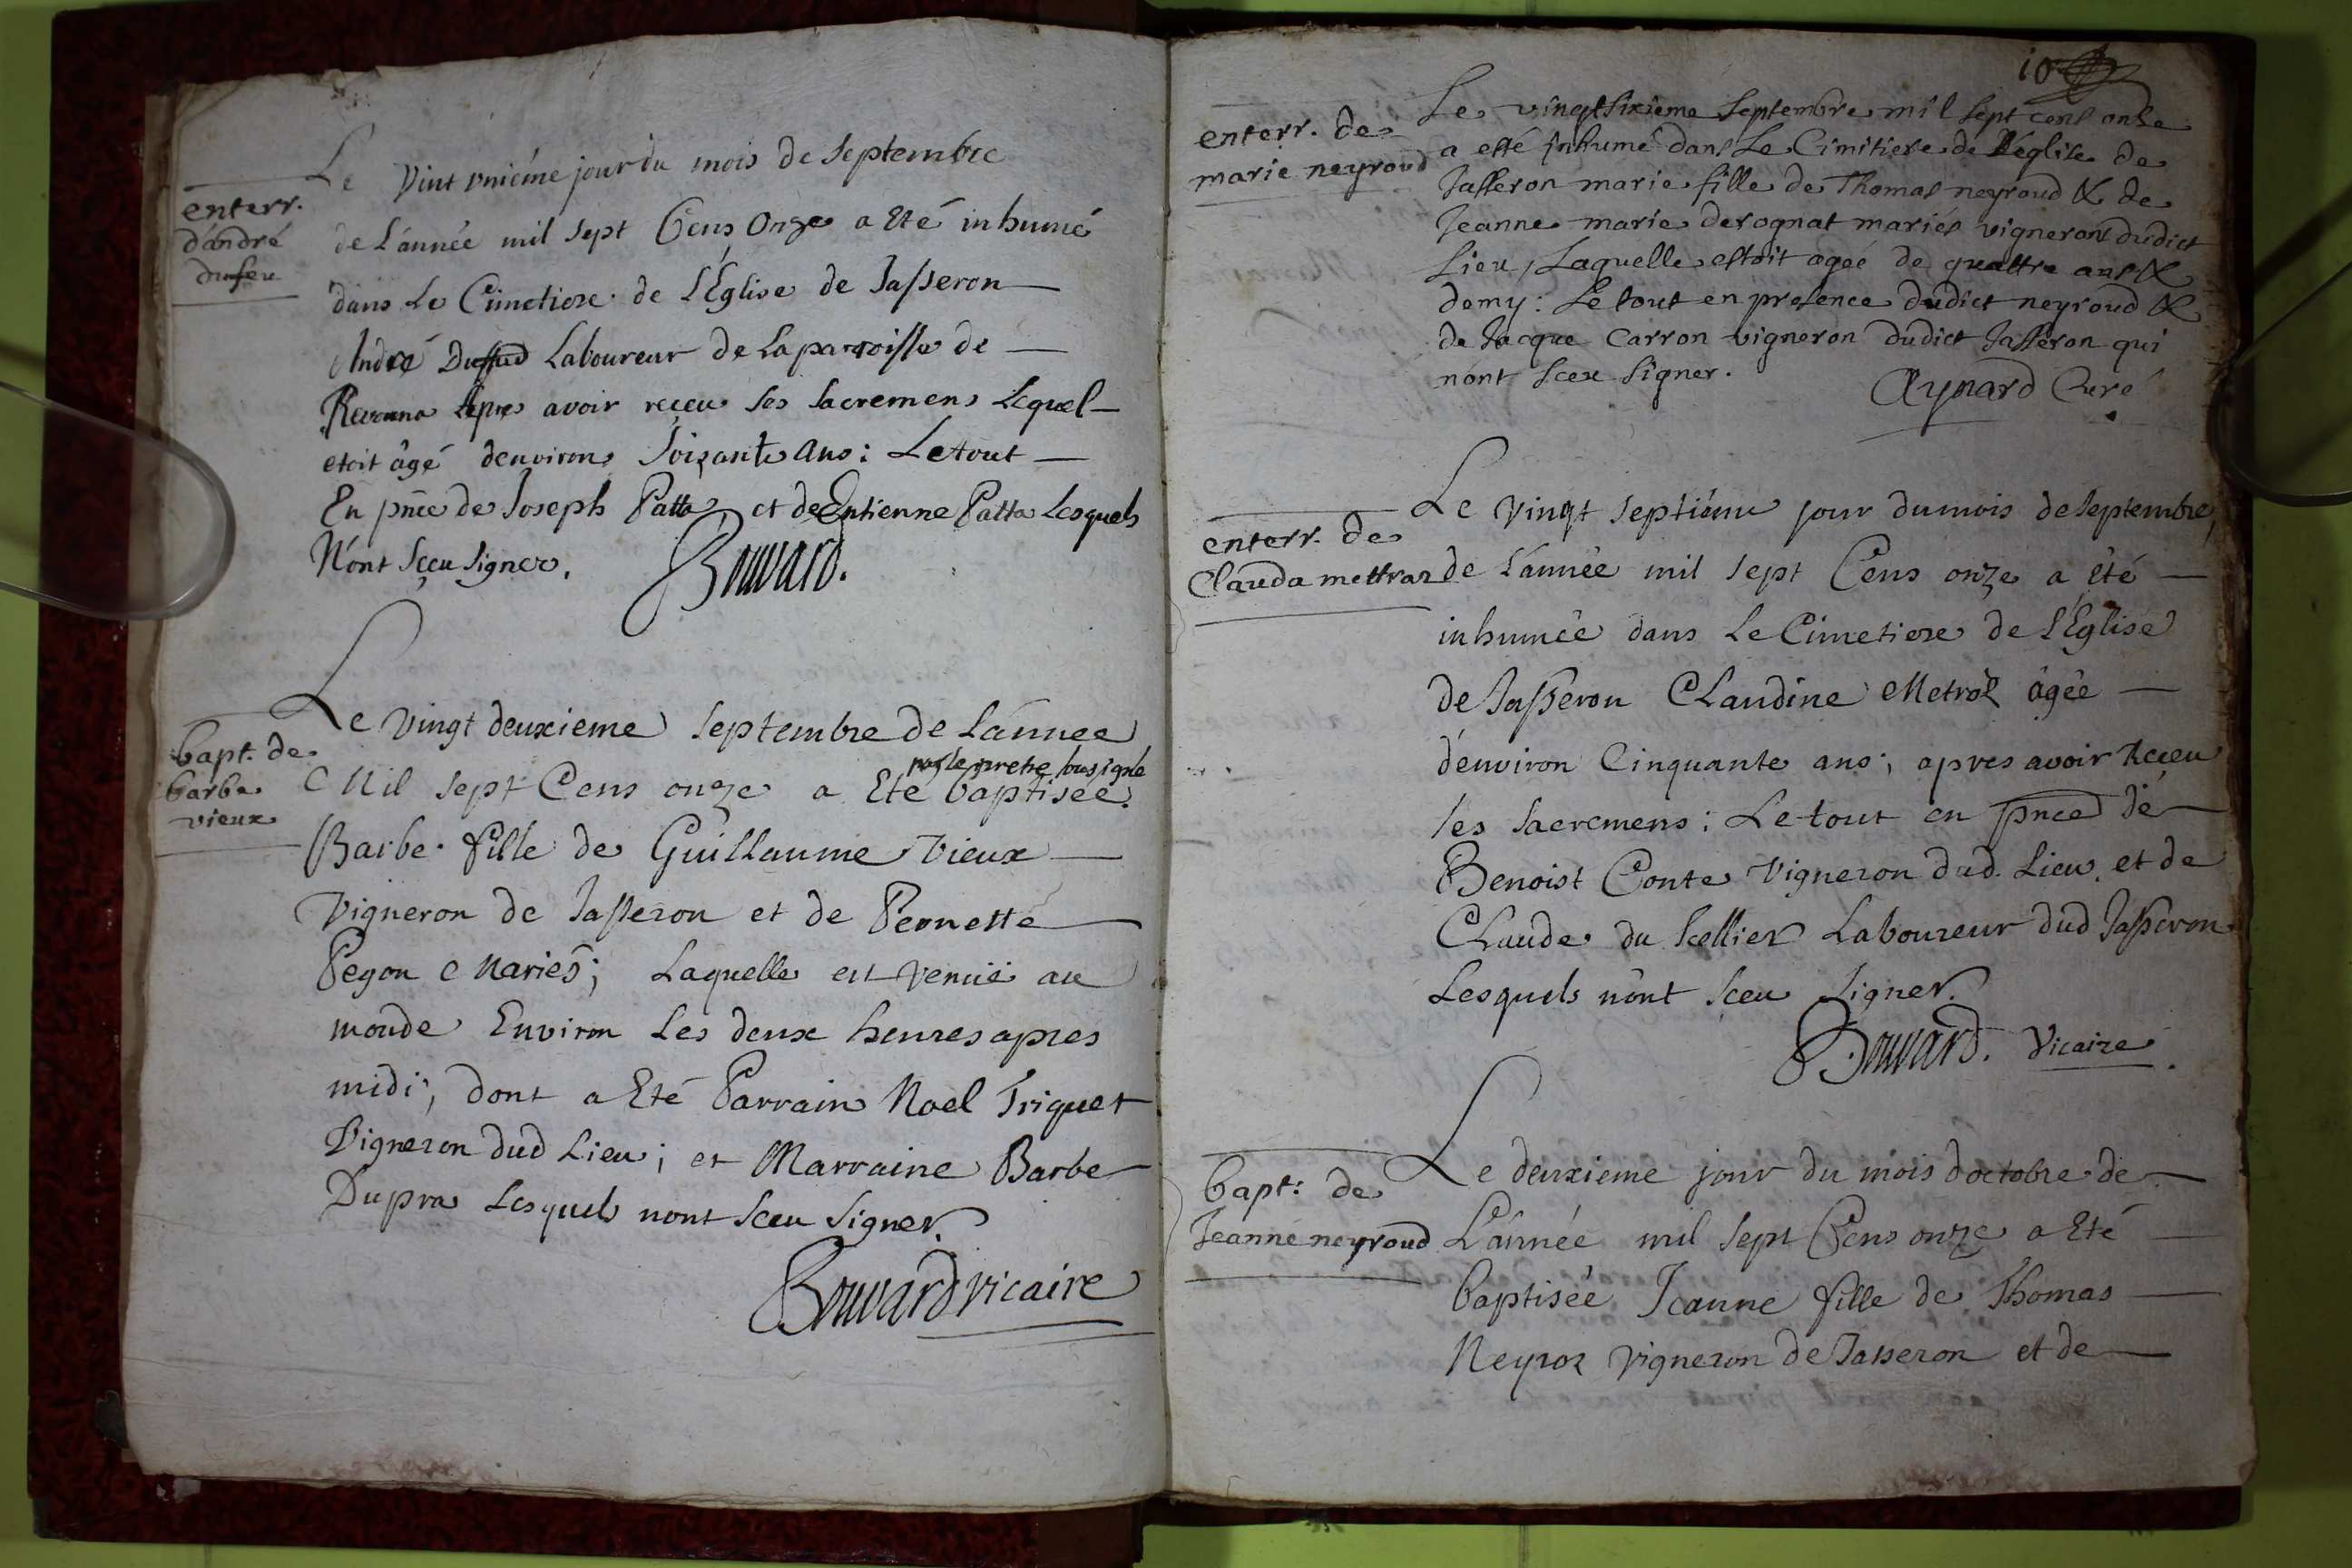 enterr.
d'andré
dufeu
Le Vint vniéme jour du mois de Septembre
de L'année mil sept Cens Onze a Eté inhumé
dans Le Cimetiere de L'Eglise de Jasseron
André Duffud Laboureur de La parroisse de
Revonna apres avoir reçeu ses sacremens Lequel
etoit âgé denviron soixante ans : Le tout
En pnce de Joseph Patta et de Entienne Patta Lesquels
N'ont sçeu signer. Bouvard.
bapt. de
barbe
vieux
Le vingt deuxieme septembre de L'annee
par le pretre sousigné
Mil sept Cens onze a Eté baptisée.
Barbe fille de Guillaume Vieux
Vigneron de Jasseron et de Pernette
Pegon Mariés ; Laquelle est venüe au
monde Environ Les deux heures apres
midi ; dont a Eté Parrain Noel Triquet
Vigneron dud Lieu ; et Marraine Barbe
Dupra Lesquels nont sceu signer.
Bouvard vicaire
10
enterr. de
marie neyroud
Le vingtsixieme septembre mil sept cens onse
a esté inhumé dans Le Cimitiere de L'église de
Jasseron marie fille de Thomas neyroud & de
Jeanne marie derognat mariés vignerons dudict
Lieu, Laquelle estoit agée de quattre ans &
demy : Le tout en presence dudict neyroud &
de Jacque Carron vigneron dudict Jasseron qui
n'ont sceu signer. Aynard Curé
enterr. de
Clauda mettraz
Le vingt septiéme jour du mois de Septembre,
de L'année mil sept Cens onze a été
inhumée dans Le Cimetiere de L'Eglise
de Jasseron Claudine Metroz âgée
d'environ Cinquante ans ; apres avoir Reçeu
ses sacremens ; Le tout en pnce de
Benoist Conte Vigneron dud. Lieu et de
Claude du scellier Laboureur dud Jasseron
Lesquels n'ont sceu signer.
Bouvard. Vicaire
bapt: de
Jeanne neyroud
Le deuxieme jour du mois d'octobre de
L'année mil sept Cens onze a Eté
baptisée Jeanne fille de Thomas
Neyroz vigneron de Jasseron et de